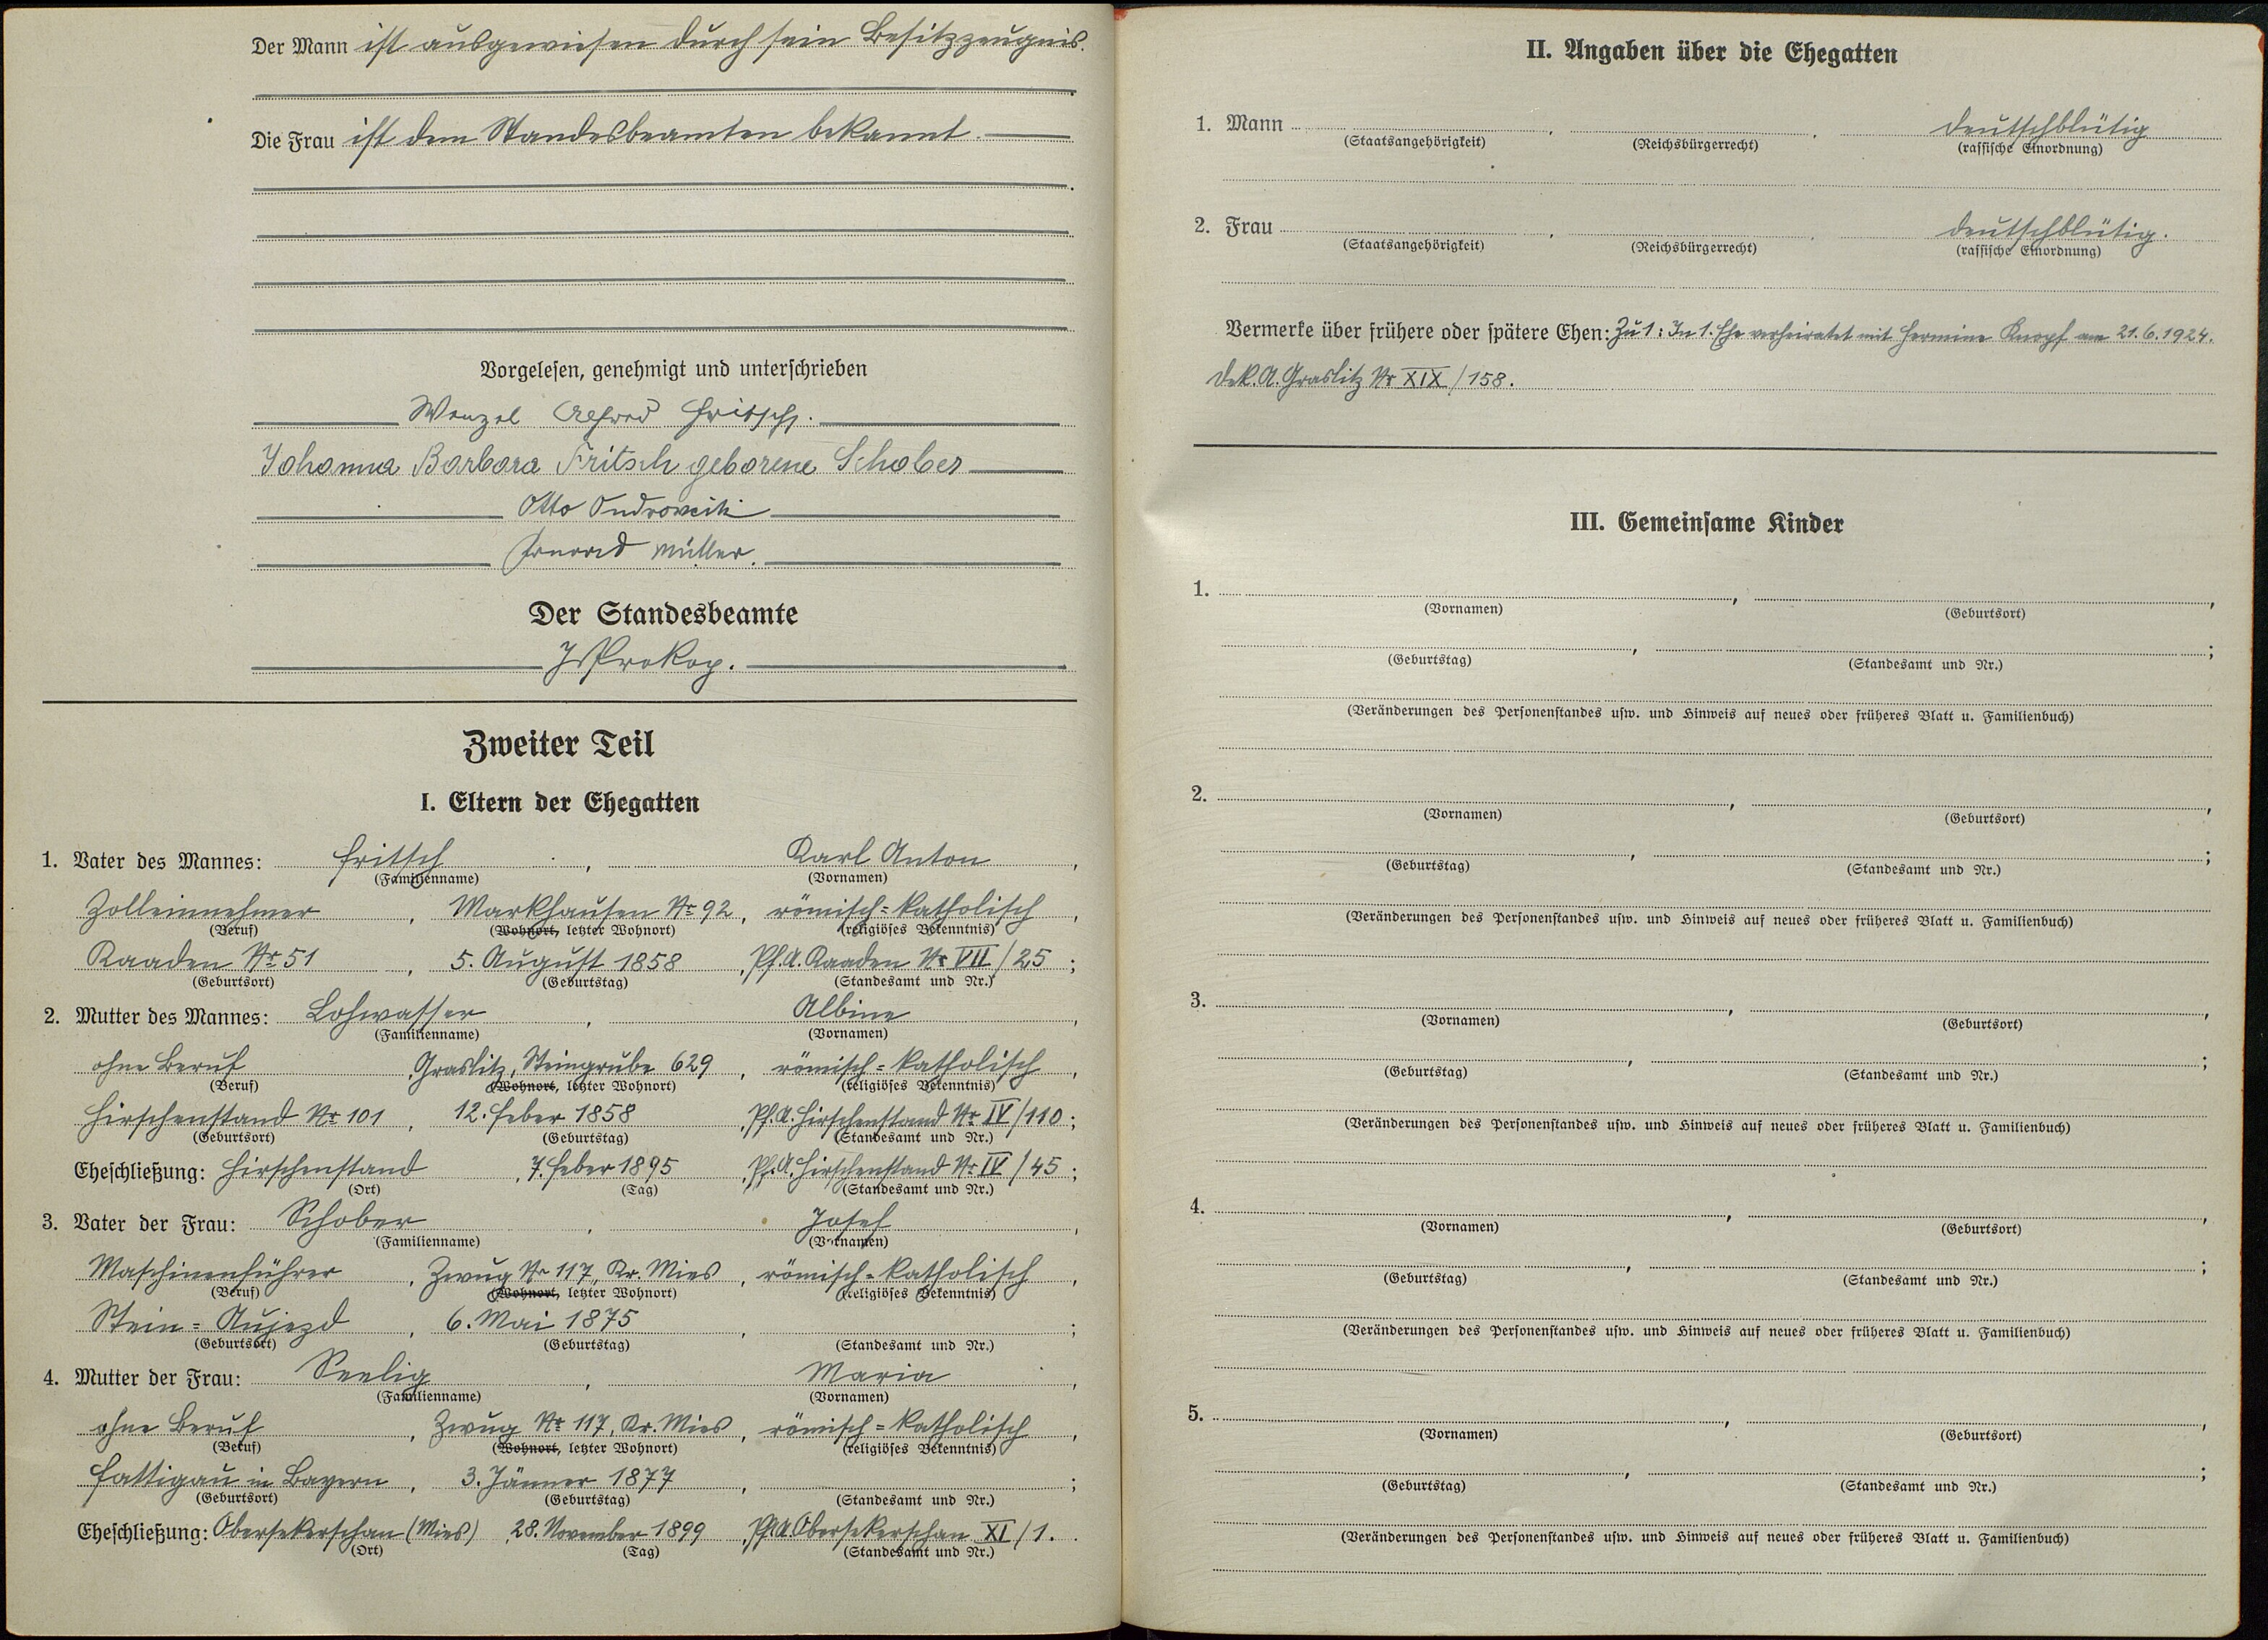 Der Mann ist ausgewiesen durch sein Besitzzeugnis.
Die Frau ist dem Standesbeamten bekannt.
Vorgelesen, genehmigt und unterschrieben
Wenzel Alfred Fritsch.
Johanna Barbara Fritsch geborene Schober
Otto
Müller.
Der Standesbeamte
Prokop.
Zweiter Teil
I. Eltern der Ehegatten
1. Vater des Mannes: Fritsch, Karl Anton,
(Familienname) (Vornamen)
Zolleinnehmer, Markhausen Nr 92, römisch=katholisch,
(Beruf) (Wohnort, letzter Wohnort) (religiöses Bekenntnis)
Kaaden Nr 51, 5. August 1858, Pf.A. Kaaden Nr VII/25;
(Geburtsort) (Geburtstag) (Standesamt und Nr.)
2. Mutter des Mannes: Lohwasser, Albine,
(Familienname) (Vornamen)
ohne Beruf, Graslitz, Steingrube 629, römisch=katholisch,
(Beruf) (Wohnort, letzter Wohnort) (religiöses Bekenntnis)
Hirschenstand Nr 101, 12. Feber 1858, Pf.A. Hirschenstand Nr IV/110;
(Geburtsort) (Geburtstag) (Standesamt und Nr.)
Eheschließung: Hirschenstand, 7. Feber 1895, Pf.A. Hirschenstand Nr IV/45;
(Ort) (Tag) (Standesamt und Nr.)
3. Vater der Frau: Schober, Josef,
(Familienname) (Vornamen)
Maschinenführer, Zwug Nr 117, Kr. Mies, römisch=katholisch,
(Beruf) (Wohnort, letzter Wohnort) (religiöses Bekenntnis)
Stein=Aujezd, 6. Mai 1875, ;
(Geburtsort) (Geburtstag) (Standesamt und Nr.)
4. Mutter der Frau: Seelig, Maria,
(Familienname) (Vornamen)
ohne Beruf, Zwug Nr 117, Kr. Mies, römisch=katholisch,
(Beruf) (Wohnort, letzter Wohnort) (religiöses Bekenntnis)
Fattigau in Bayern, 3. Jänner 1877, ;
(Geburtsort) (Geburtstag) (Standesamt und Nr.)
Eheschließung: Obersekerschan (Mies), 28. November 1899, Pf.A. Obersekerschan XI/1.
(Ort) (Tag) (Standesamt und Nr.)
II. Angaben über die Ehegatten
1. Mann , , deutschblütig
(Staatsangehörigkeit) (Reichsbürgerrecht) (rassische Einordnung)
2. Frau , , deutschblütig.
(Staatsangehörigkeit) (Reichsbürgerrecht) (rassische Einordnung)
Vermerke über frühere oder spätere Ehen: Zu 1: In 1. Ehe verheiratet mit Hermine Knopf am 21.6.1924.
Dek.A. Graslitz Nr XIX/158.
III. Gemeinsame Kinder
1. , ,
(Vornamen) (Geburtsort)
, ;
(Geburtstag) (Standesamt und Nr.)
(Veränderungen des Personenstandes usw. und Hinweis auf neues oder früheres Blatt u. Familienbuch)
2. , ,
(Vornamen) (Geburtsort)
, ;
(Geburtstag) (Standesamt und Nr.)
(Veränderungen des Personenstandes usw. und Hinweis auf neues oder früheres Blatt u. Familienbuch)
3. , ,
(Vornamen) (Geburtsort)
, ;
(Geburtstag) (Standesamt und Nr.)
(Veränderungen des Personenstandes usw. und Hinweis auf neues oder früheres Blatt u. Familienbuch)
4. , ,
(Vornamen) (Geburtsort)
, ;
(Geburtstag) (Standesamt und Nr.)
(Veränderungen des Personenstandes usw. und Hinweis auf neues oder früheres Blatt u. Familienbuch)
5. , ,
(Vornamen) (Geburtsort)
, ;
(Geburtstag) (Standesamt und Nr.)
(Veränderungen des Personenstandes usw. und Hinweis auf neues oder früheres Blatt u. Familienbuch)